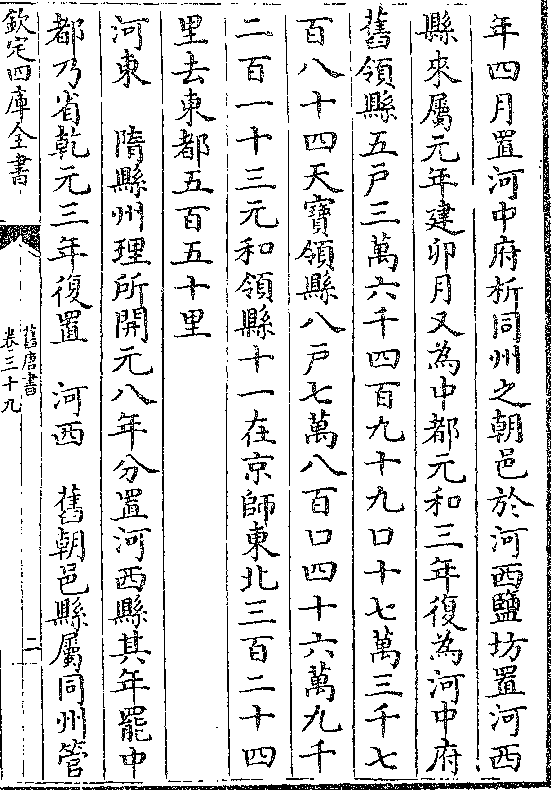 年四月置河中府析同州之朝邑於河西鹽坊置河西
縣來屬元年建卯月又為中都元和三年復為河中府
舊領縣五戸三萬六千四百九十九口十七萬三千七
百八十四天寶領縣八戸七萬八百口四十六萬九千
二百一十三元和領縣十一在京師東北三百二十四
里去東都五百五十里
河東　隋縣州理所開元八年分置河西縣其年罷中
都乃省乾元三年復置　河西　舊朝邑縣屬同州管
欽定四庫全書
舊唐書
卷三十九
二